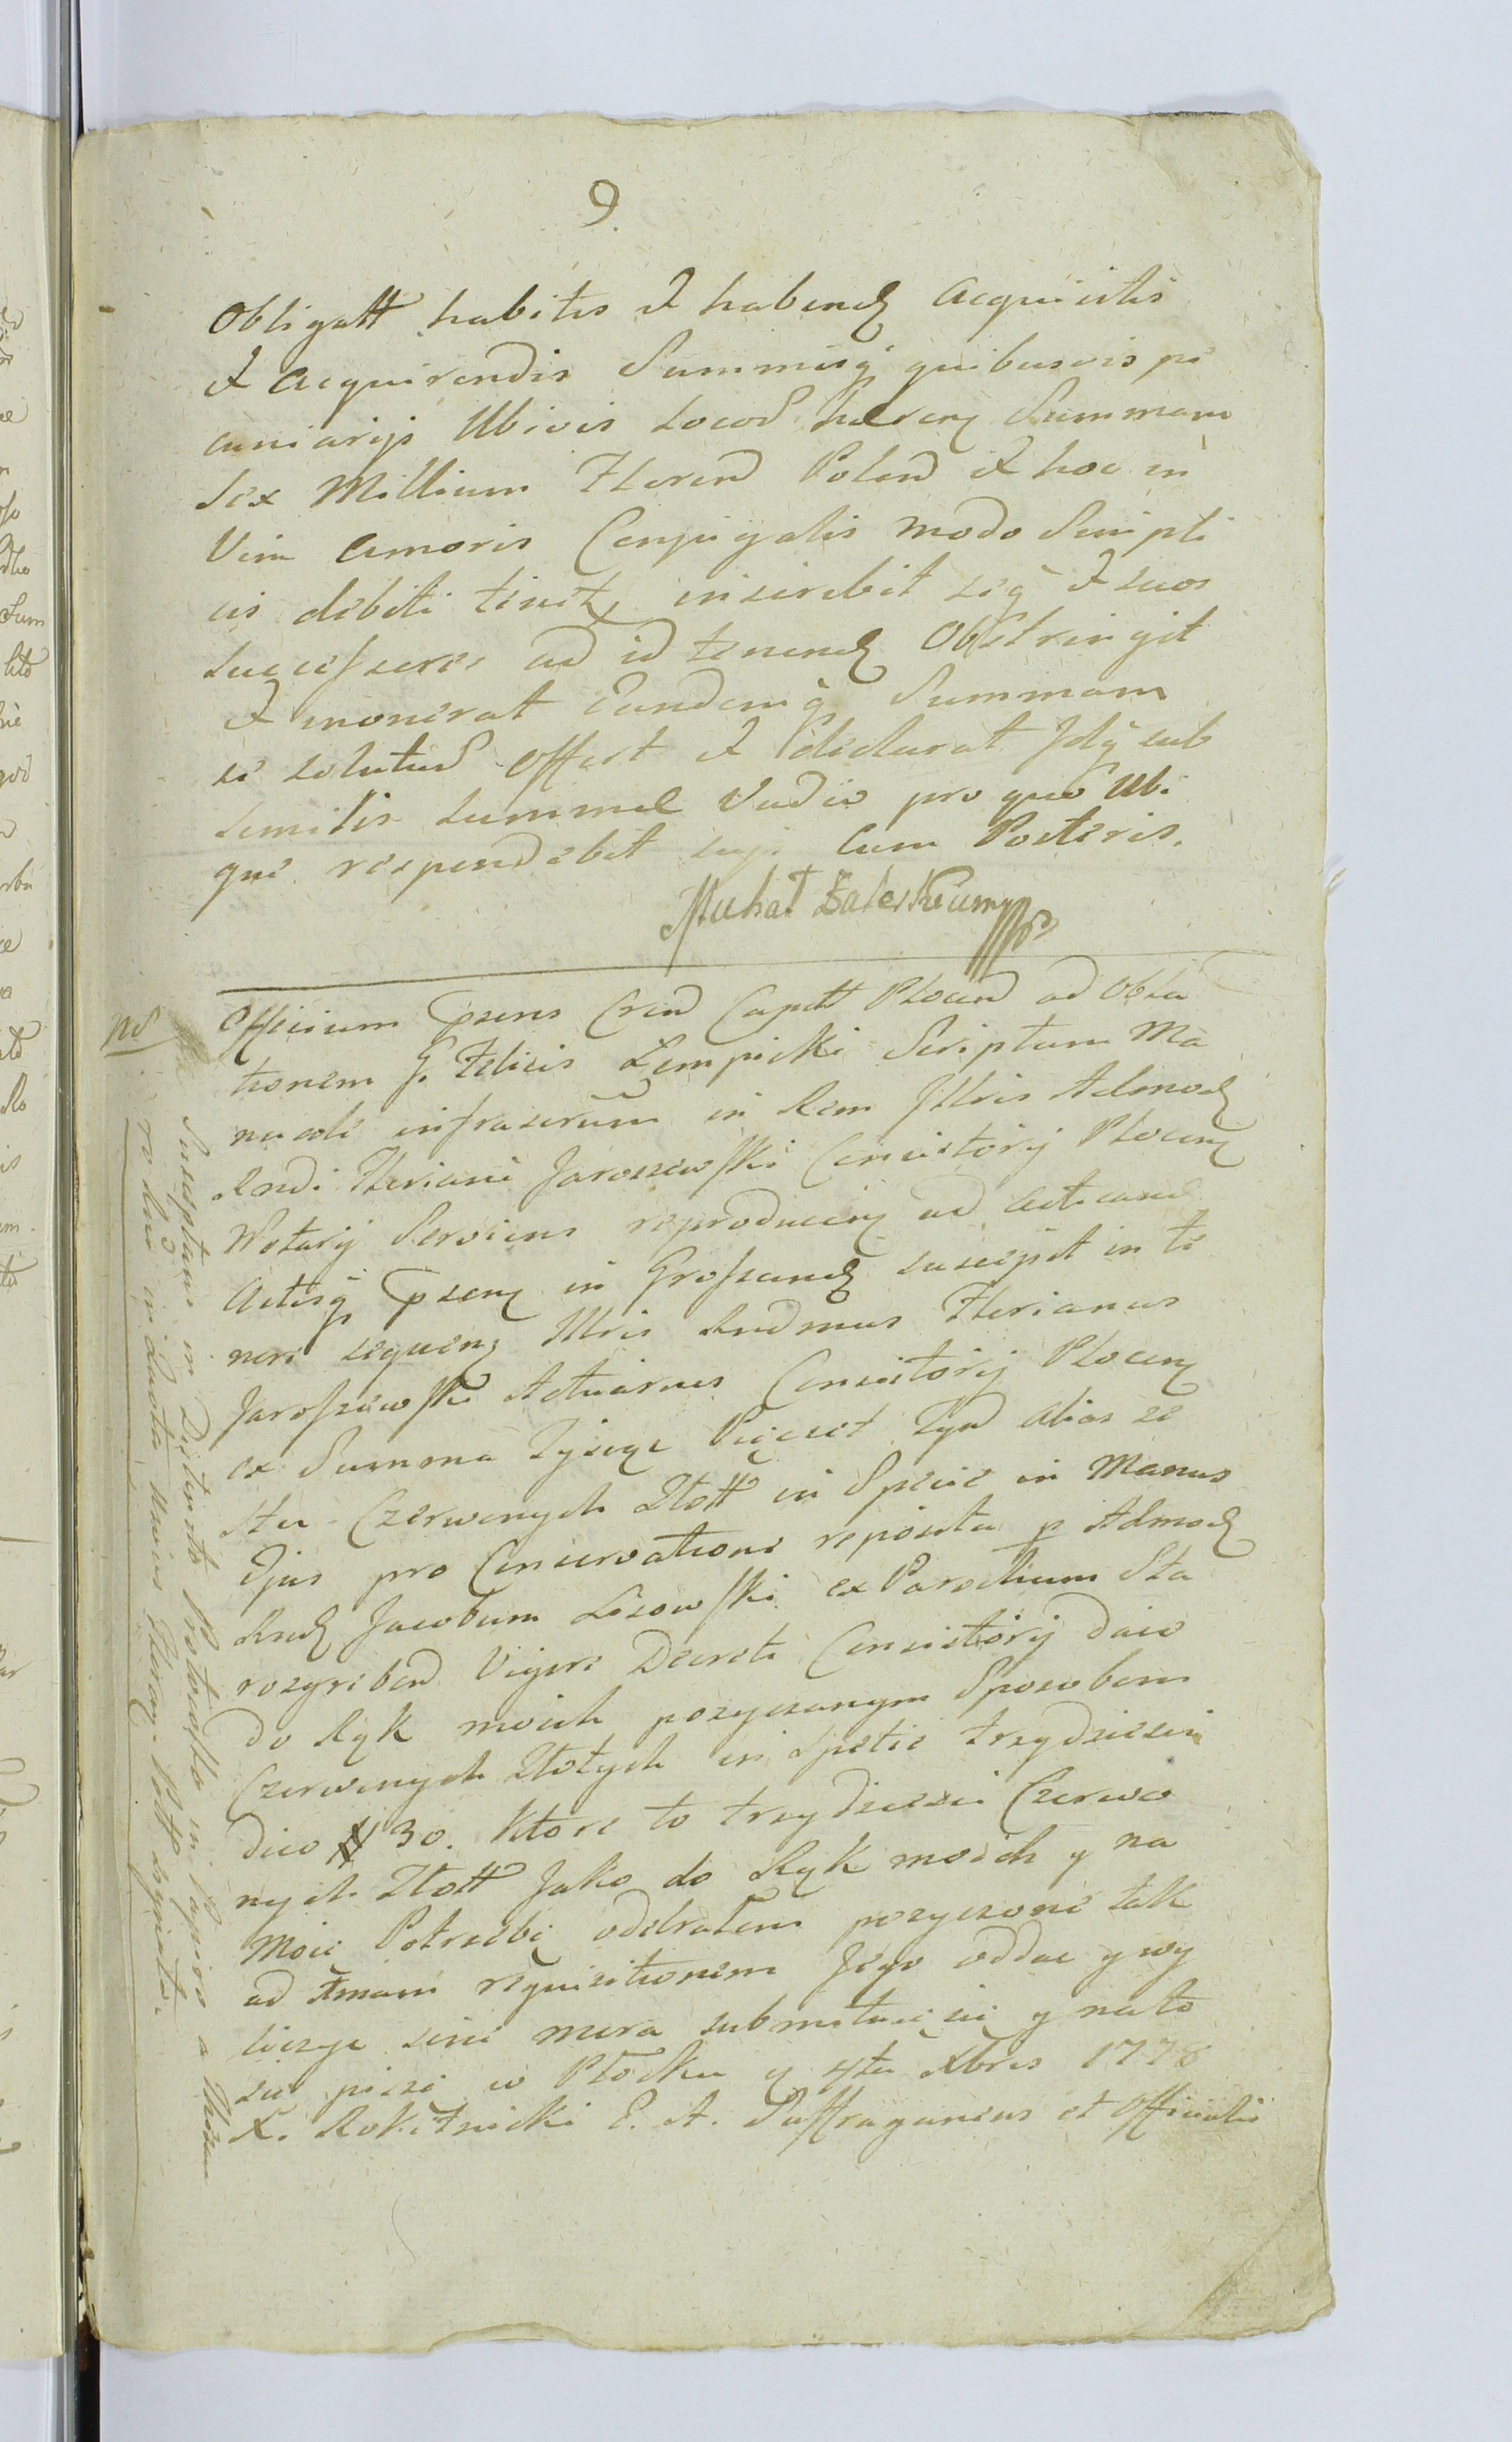 9.
Obligatt habitis et habend acquisitis
et acquirendis Summisq quibusvis pe
cuniarijs Ubivis Locor haeren Summam
Sex Millium Floren Polon et hoc in
Vim amoris Conjugalis modo Simpli
cis debiti tenet, inscribit seq et suos
Successores ad id tenend Obstringit
et inonerat Eandemq Summam
se soluturu offert et declarat Idq sub
similis summae Vadio pro quo Ubi
que respondebit suis cum Posteris.
Michał
Officium psens Cren Capitt Plocen ad Obla
tionem G. Felicis Lempicki Scriptum Ma
nuale infrascrum in Rem Illris Admod
Rndi Floriani Jaroszewski Consistorij Plocen
Notarij Serviens reproducen ad acticand
Actisq psen in Grossand suscepit in te
nore sequen Illris Rndmus Florianus
Jaroszewski Actuarius Consistorij Plocen
ex Summa Tysięcy Pięcset Tyn alias ze
stu Czerwonych Złott in Specie in Manus
Ejus pro Conservatione reposita p Admod
Rnd Jacobum Lisowski ex Parochum Sta
rozgreben Vigore Decreti Consistorij daie
do Rąk moich pozyczanym Sposobem
Czerwonych Złotych in Spetie trzydziesci
dico # 30. Ktore to trzydziesci Czerwo
nych Złott Jako do Rąk moich y na
Moie Potrzebę odebrałem pozyczone tak
ad Imam requisitionem Jego oddac y wy
liczyc sine mora submituię się y na to
się piszę w Płocku d 4ta Xbris 1778
X. Rokitnicki E. A. Suffraganeus et Officialis
NB
Susceptum in Papiro a
ro in Carta unius Floren Pott